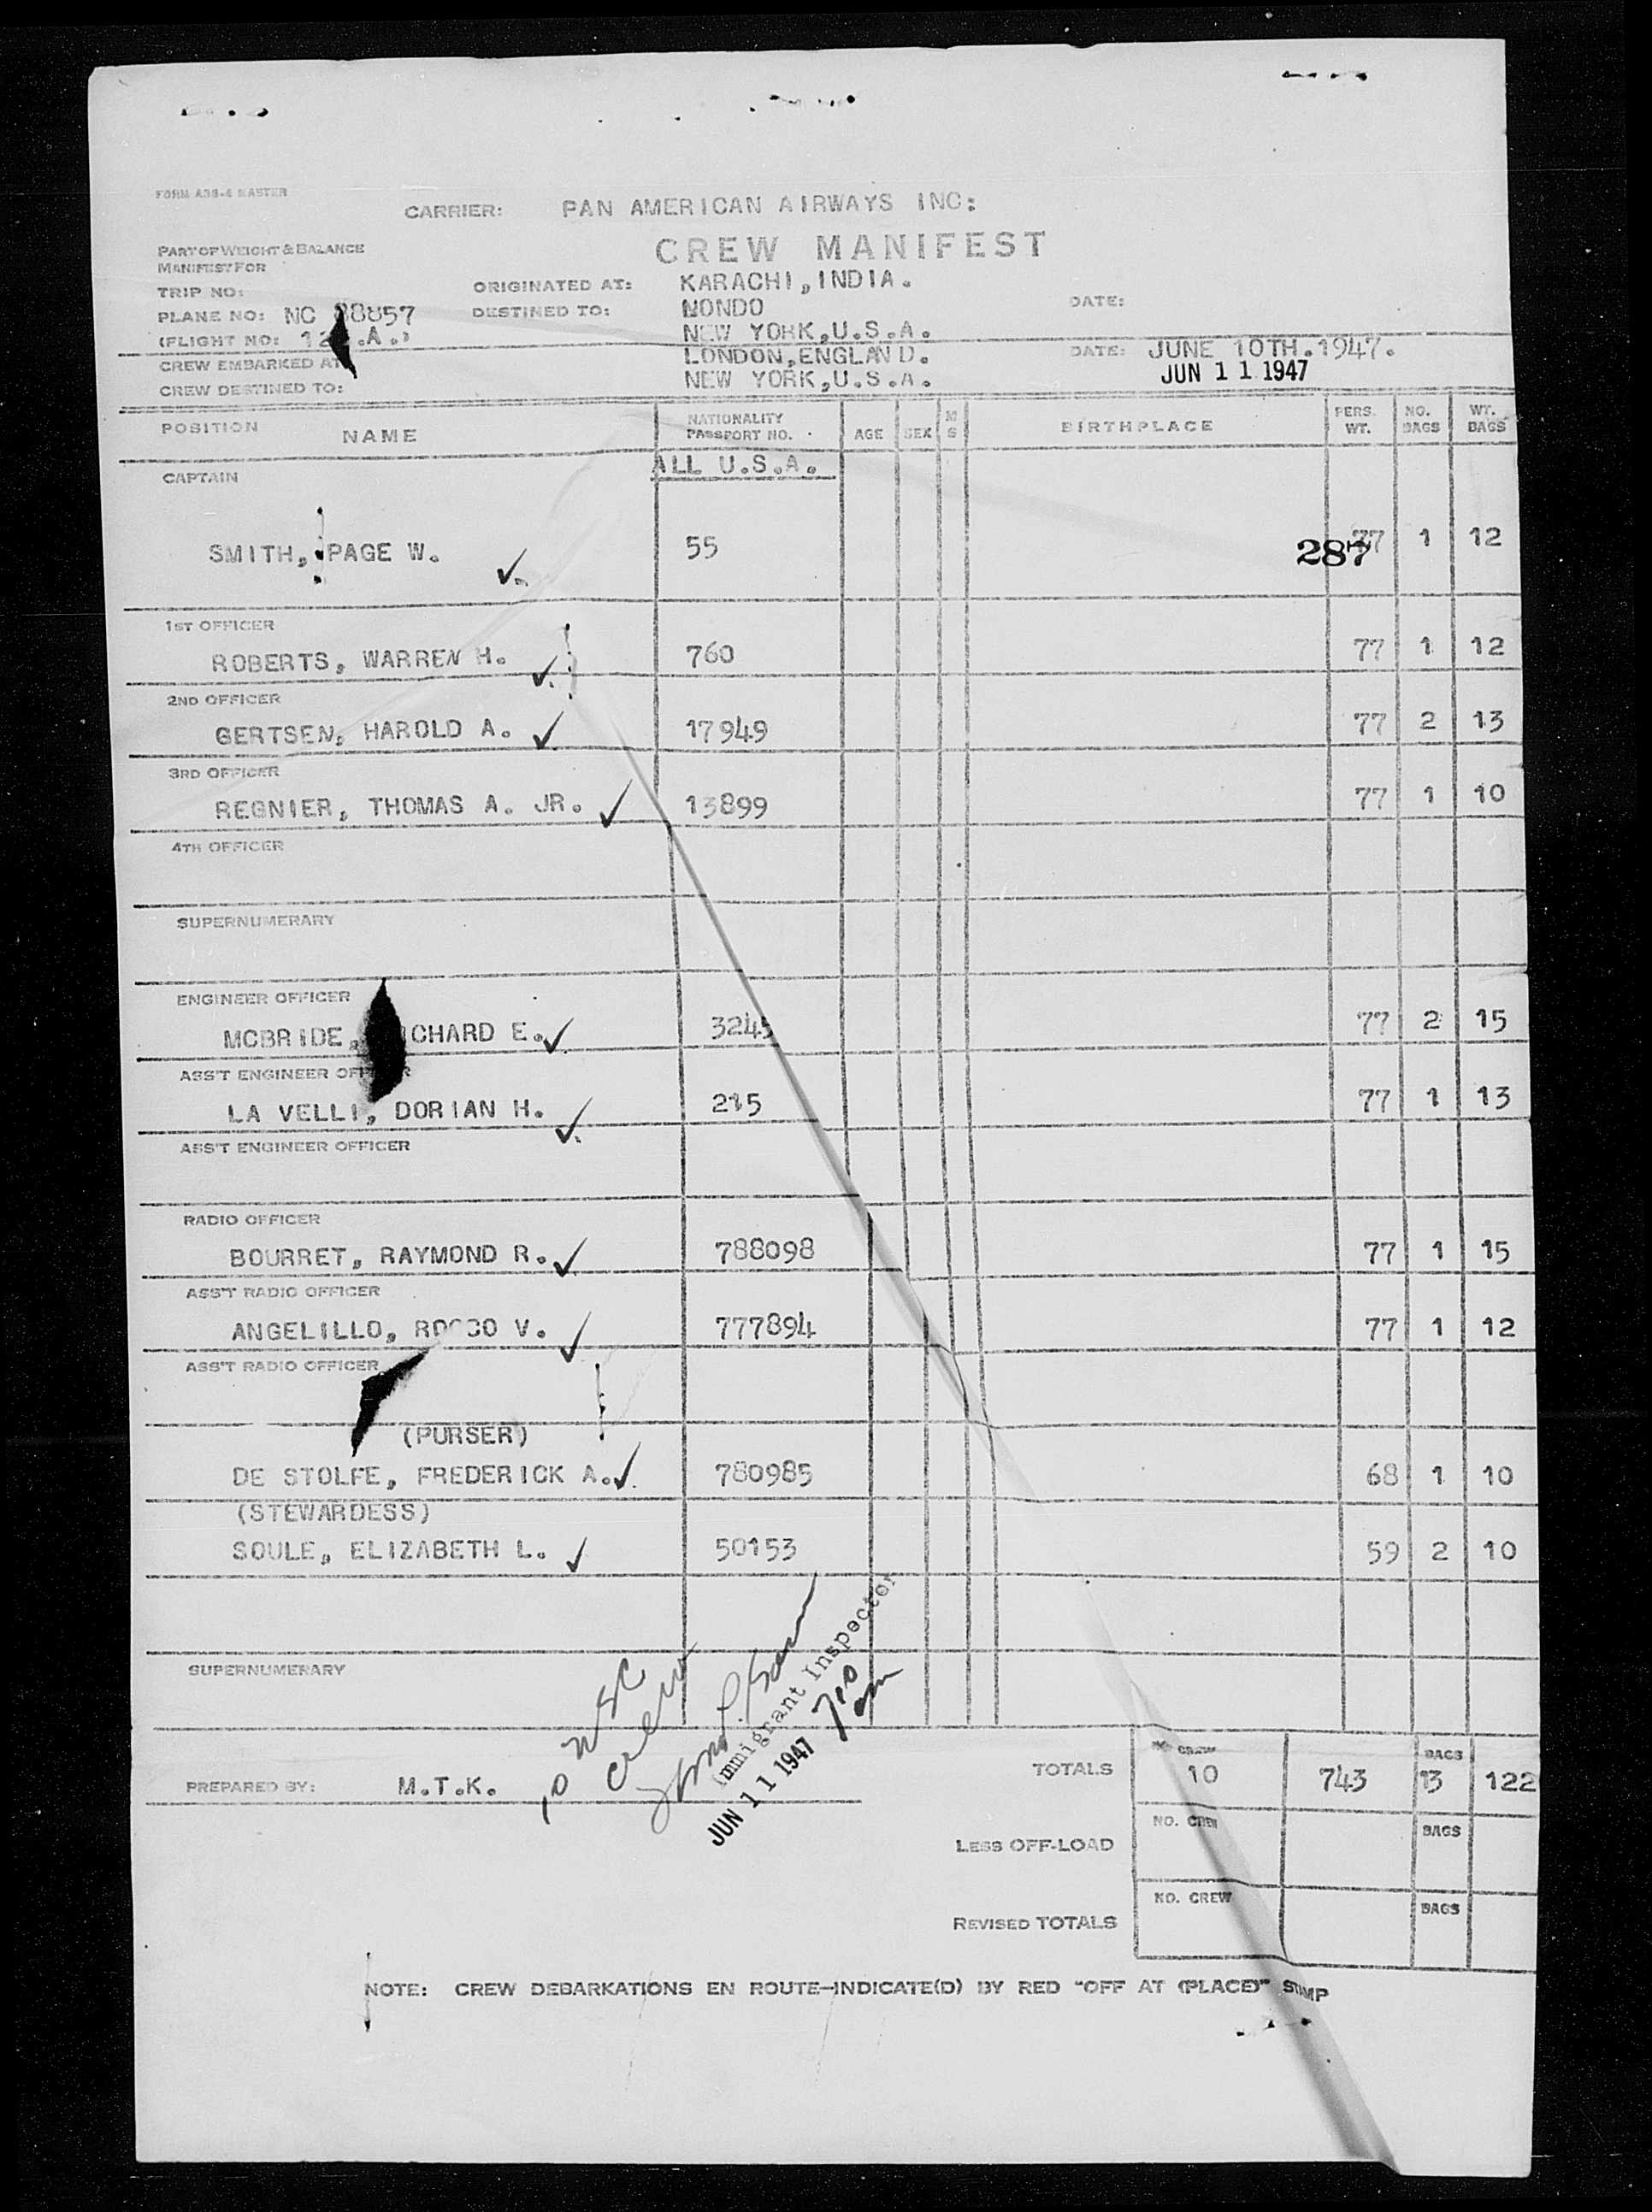 FORM A38-4 MASTER
CARRIER: PAN AMERICAN AIRWAYS INC:
PART OF WEIGHT & BALANCE
MANIFEST FOR
CREW MANIFEST
TRIP NO:
ORIGINATED AT: KARACHI, INDIA.
PLANE NO: NC 88857
DESTINED TO: NONDO
DATE:
(FLIGHT NO: 12 .A.)
NEW YORK, U.S.A.
CREW EMBARKED AT
LONDON, ENGLAND.
DATE: JUNE 10TH. 1947.
CREW DESTINED TO:
NEW YORK, U.S.A.
JUN 11 1947
POSITION NAME NATIONALITY PASSPORT NO. AGE SEX M S BIRTHPLACE PERS. WT. NO. BAGS WT. BAGS
CAPTAIN
ALL U.S.A.
SMITH, PAGE W. 55 287 77 1 12
1ST OFFICER
ROBERTS, WARREN H. 760 77 1 12
2ND OFFICER
GERTSEN, HAROLD A. 17949 77 2 13
3RD OFFICER
REGNIER, THOMAS A. JR. 13899 77 1 10
4TH OFFICER
SUPERNUMERARY
ENGINEER OFFICER
MCBRIDE, CHARD E. 3245 77 2 15
ASS'T ENGINEER OFFICER
LA VELLI, DORIAN H. 215 77 1 13
ASS'T ENGINEER OFFICER
RADIO OFFICER
BOURRET, RAYMOND R. 788098 77 1 15
ASS'T RADIO OFFICER
ANGELILLO, ROCCO V. 777894 77 1 12
ASS'T RADIO OFFICER
(PURSER)
DE STOLFE, FREDERICK A. 780985 68 1 10
(STEWARDESS)
SOULE, ELIZABETH L. 50153 59 2 10
SUPERNUMERARY
10 USC
crew
Immigrant Inspector
JUN 11 1947
7:10
am
PREPARED BY: M.T.K.
TOTALS NO. CREW 10 743 BAGS 13 122
LESS OFF-LOAD NO. CREW BAGS
REVISED TOTALS NO. CREW BAGS
NOTE: CREW DEBARKATIONS EN ROUTE—INDICATE(D) BY RED "OFF AT (PLACE)" STAMP